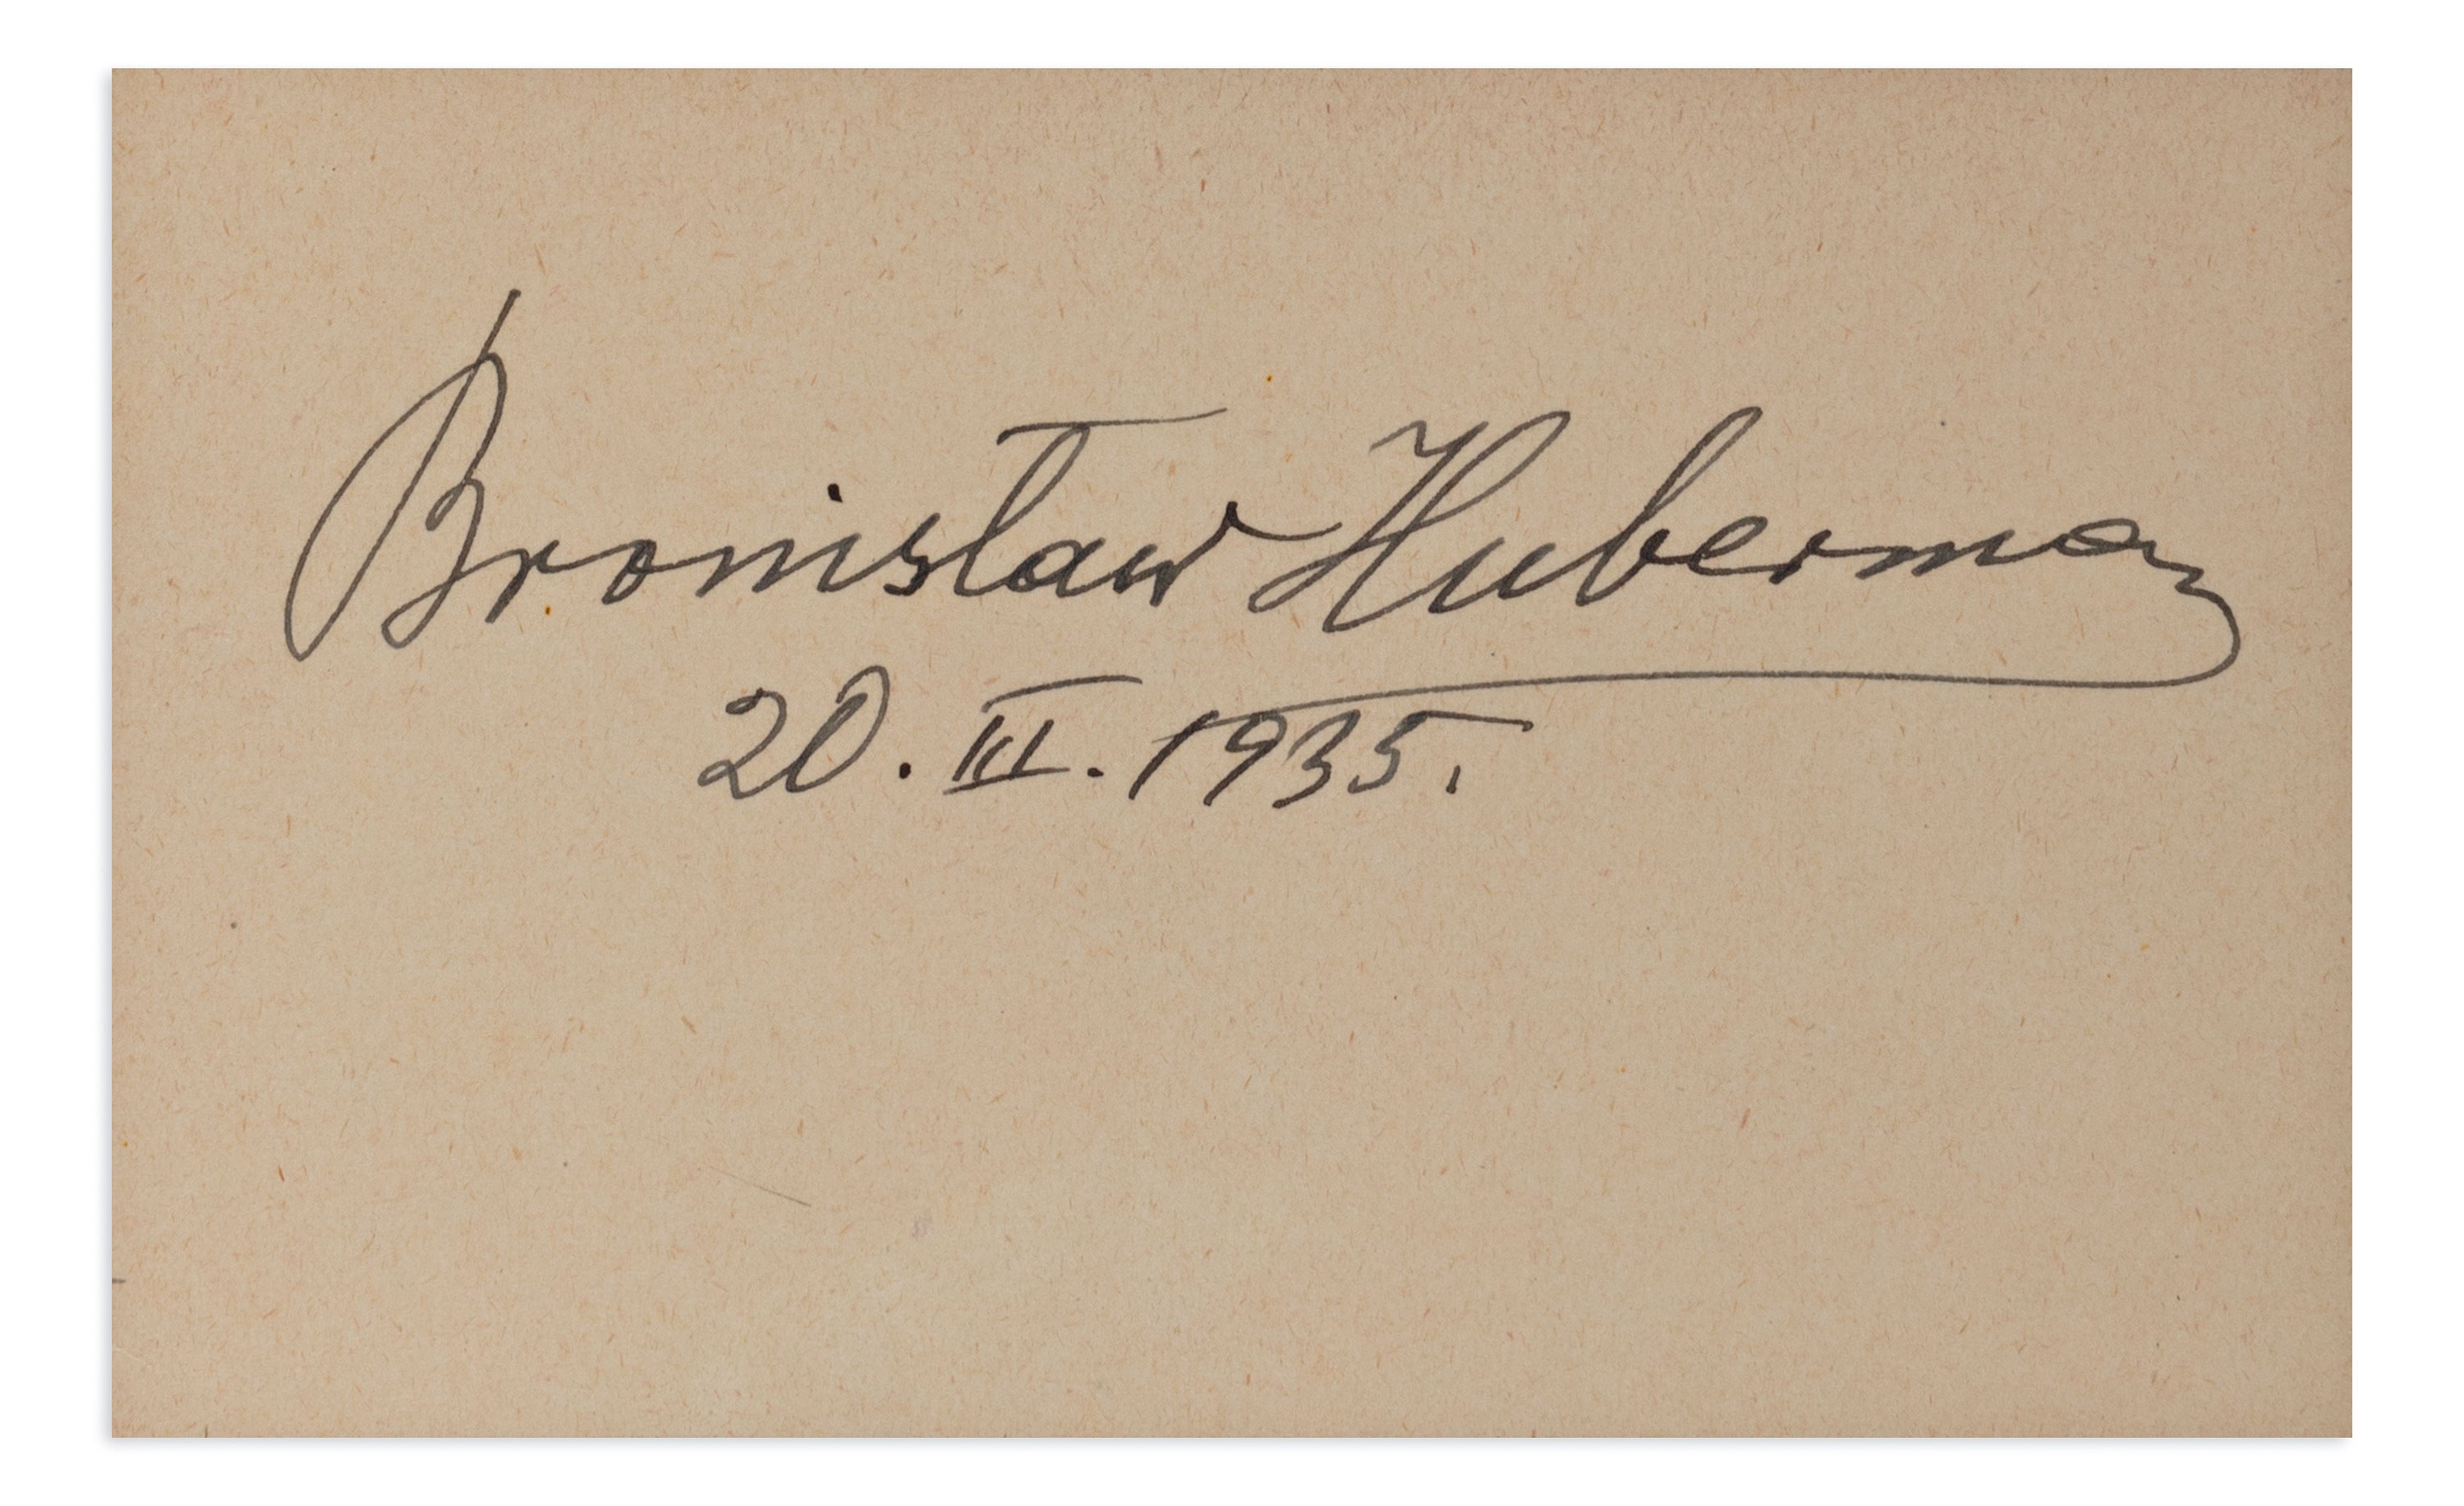 Bronisław Huberman
20. III. 1935.